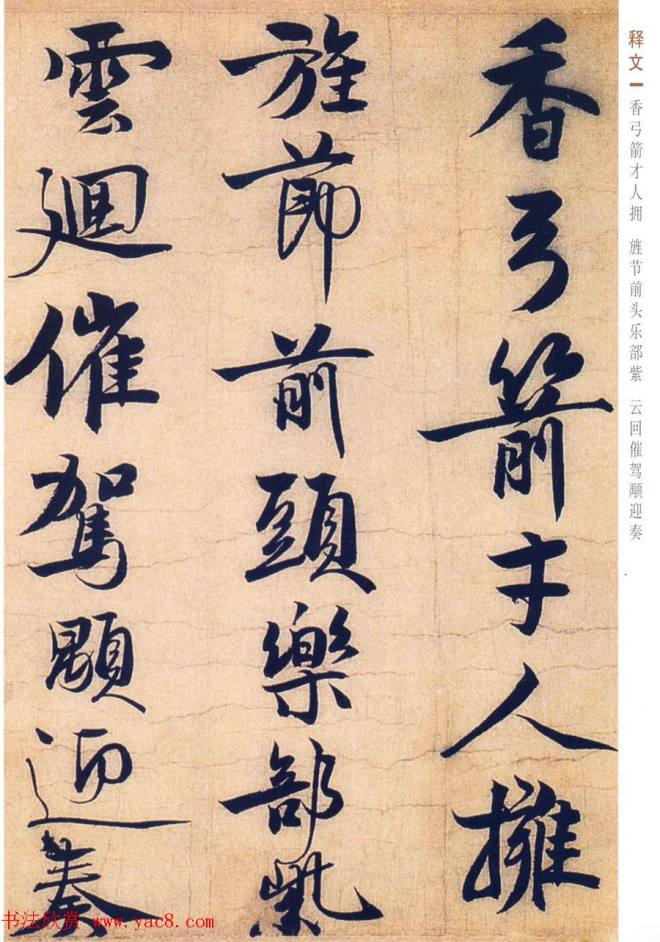 香弓箭才人擁
旌節前頭樂部紫
雲迴催駕顒迎奏
释文
香弓箭才人拥 旌节前头乐部紫 云回催驾颙迎奏
书法欣赏 www.yac8.com